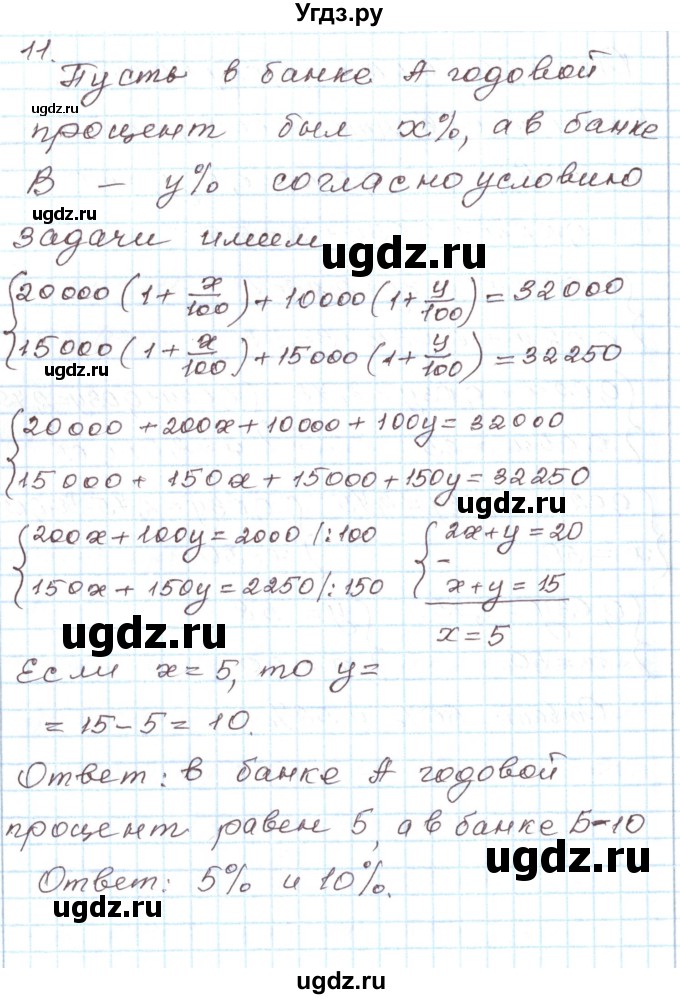 Угдз.ру
11.
Пусть в банке А годовой
ugdz.ru
процент был x%, а в банке
В — y% согласно условию
ugdz.ru
задачи имеем
ugdz.ru
{20000(1+x/100)+10000(1+y/100)=32000
{15000(1+x/100)+15000(1+y/100)=32250
ugdz.ru
{20000+200x+10000+100y=32000
{15000+150x+15000+150y=32250
ugdz.ru
{200x+100y=2000 /:100 {2x+y=20
{150x+150y=2250 /:150 - x+y=15
ugdz.ru
x=5
Если x=5, то y=
=15-5=10.
ugdz.ru
Ответ: в банке А годовой
процент равен 5, а в банке Б-10
ugdz.ru
Ответ: 5% и 10%.
ugdz.ru
ugdz.ru